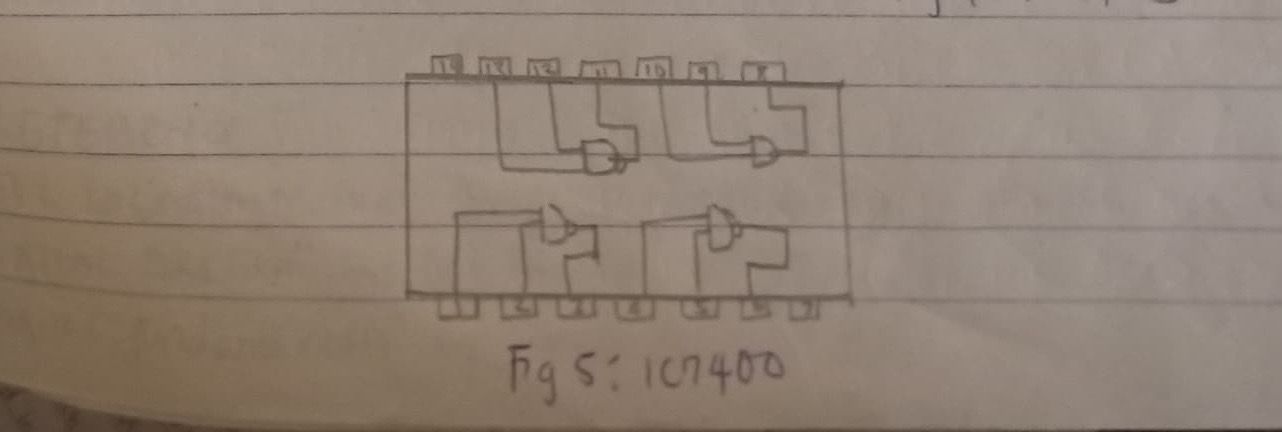 14 13 12 11 10 9 8
1 2 3 4 5 6 7
Fig 5: IC7400